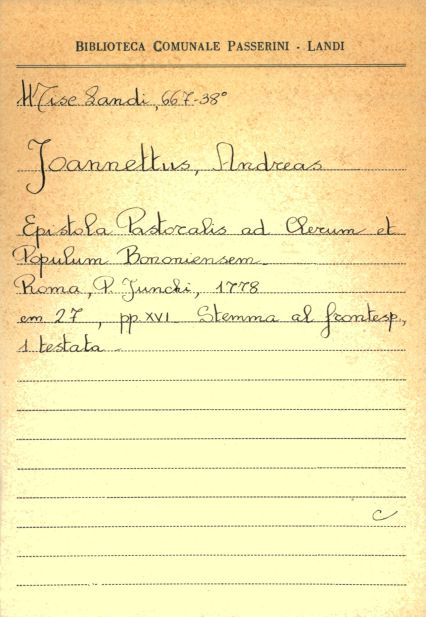 BIBLIOTECA COMUNALE PASSERINI - LANDI
Misc Landi, 667-38°
Joannettus, Andreas
Epistola Pastoralis ad Clerum et
Populum Bononiensem.
Roma, P. Junchi, 1778
cm 27, pp. XVI. Stemma al frontesp.,
1 testata.
C